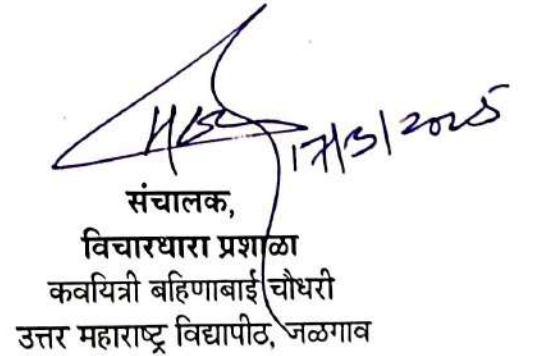 17/3/2025
संचालक,
विचारधारा प्रशाळा
कवयित्री बहिणाबाई चौधरी
उत्तर महाराष्ट्र विद्यापीठ, जळगाव